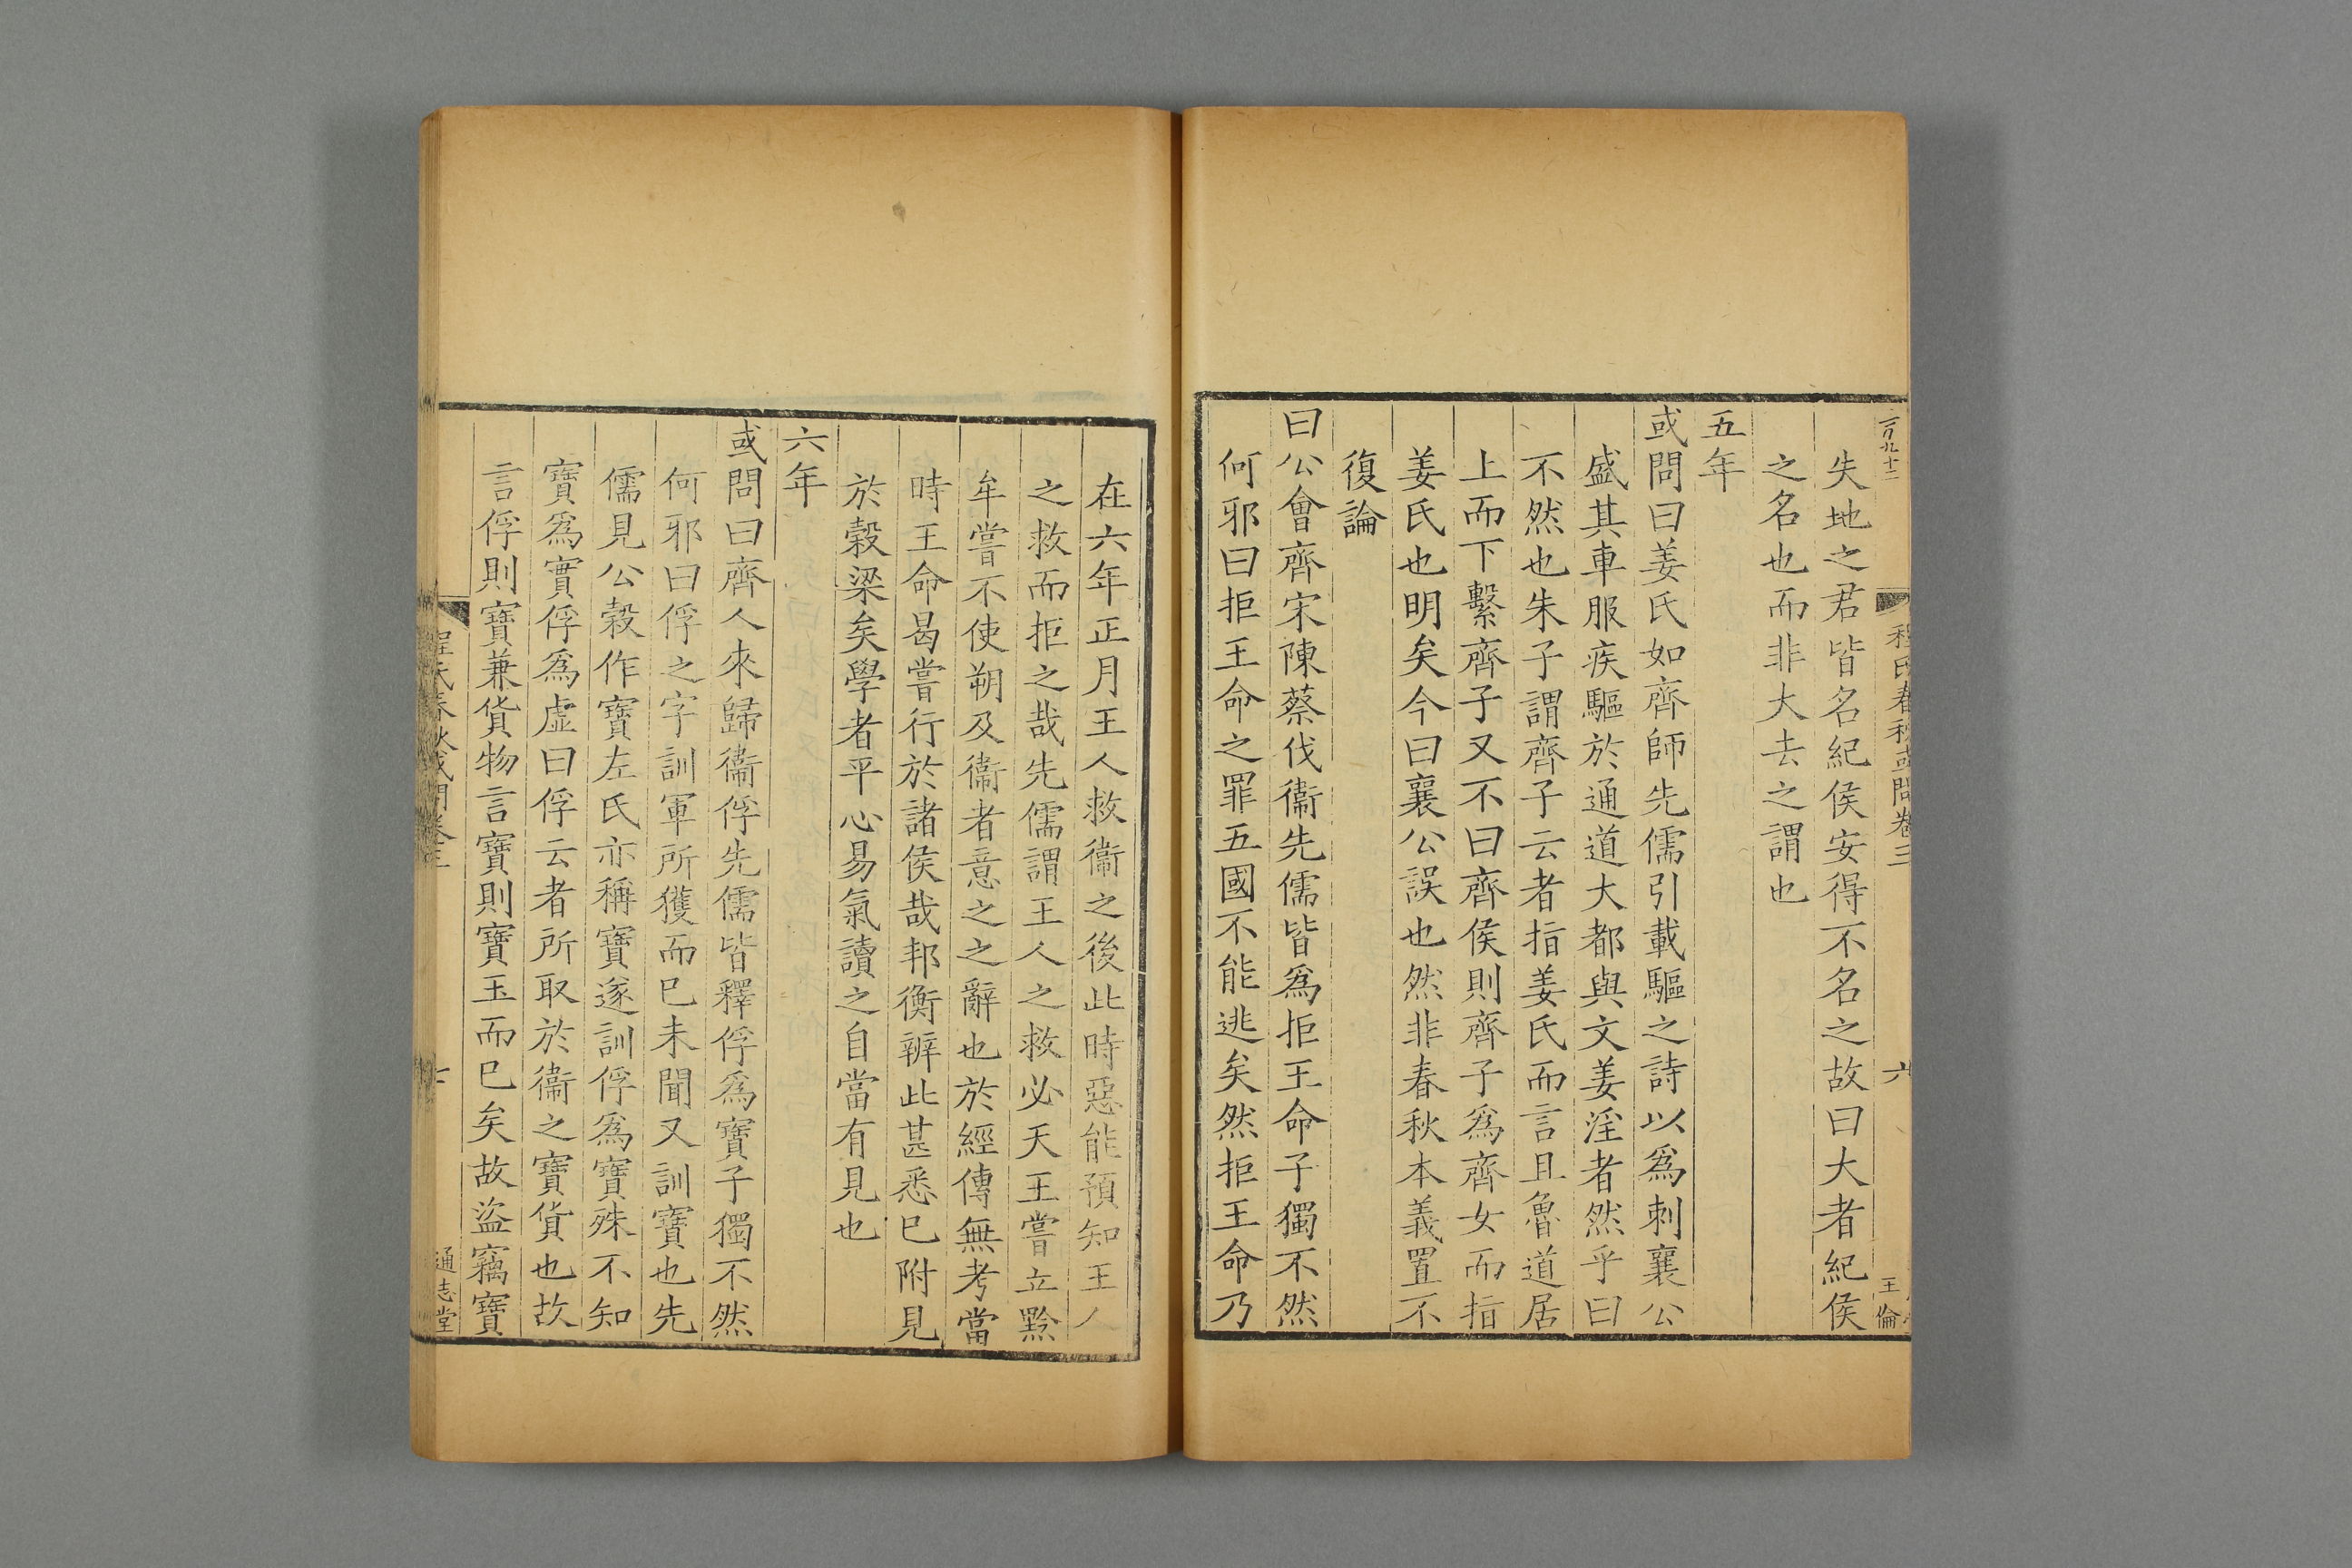 程氏春秋或問卷三
六
王倫
失地之君皆名紀侯安得不名之故曰大者紀侯
之名也而非大去之謂也
五年
或問曰姜氏如齊師先儒引載驅之詩以爲刺襄公
盛其車服疾驅於通道大都與文姜淫者然乎曰
不然也朱子謂齊子云者指姜氏而言且魯道居
上而下繫齊子又不曰齊侯則齊子爲齊女而指
姜氏也明矣今曰襄公誤也然非春秋本義置不
復論
曰公會齊宋陳蔡伐衞先儒皆爲拒王命子獨不然
何邪曰拒王命之罪五國不能逃矣然拒王命乃
在六年正月王人救衞之後此時惡能預知王人
之救而拒之哉先儒謂王人之救必天王嘗立黔
牟嘗不使朔及衞者意之之辭也於經傳無考當
時王命曷嘗行於諸侯哉邦衡辨此甚悉已附見
於穀梁矣學者平心易氣讀之自當有見也
六年
或問曰齊人來歸衞俘先儒皆釋俘爲寶子獨不然
何邪曰俘之字訓軍所獲而已未聞又訓寶也先
儒見公穀作寶左氏亦稱寶遂訓俘爲寶殊不知
寶爲實俘爲虛曰俘云者所取於衞之寶貨也故
言俘則寶兼貨物言寶則寶玉而已矣故盜竊寶
程氏春秋或問卷三
通志堂